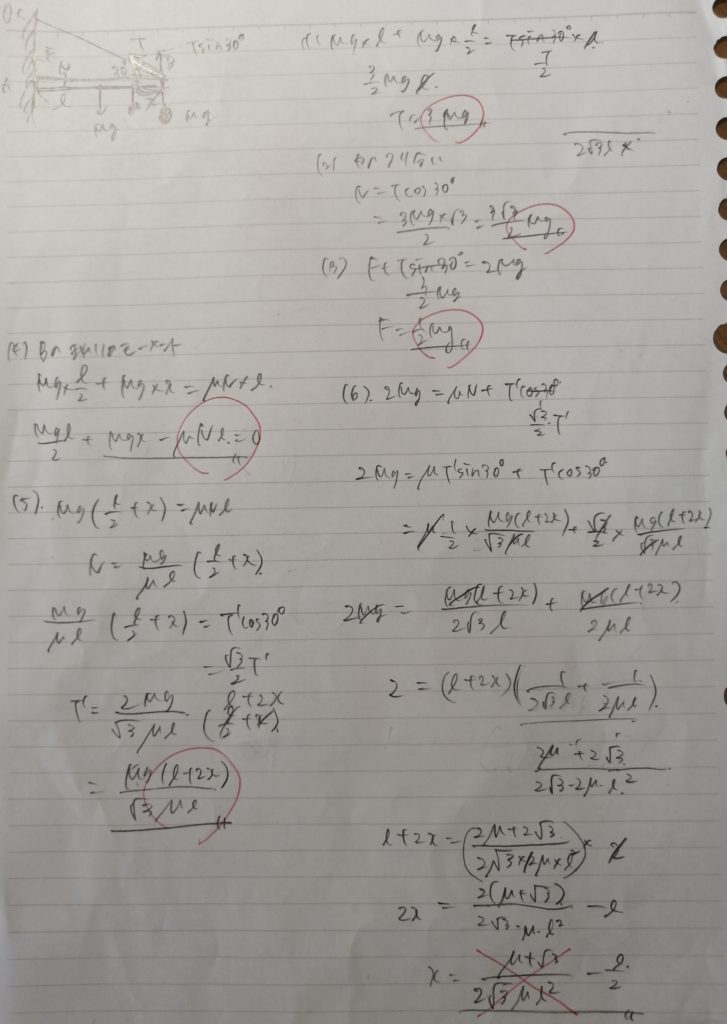 T
Tsin30°
30°
N
A
l
Mg
Mg
Mg×l + Mg×l/2 = Tsin30°×l
T/2
3/2 Mg l
T = 3Mg
N = Tcos30°
= 3Mg×√3/2 = 3√3/2 Mg
(3) F + Tsin30° = 2Mg
3/2 Mg
F = 1/2 Mg
(4)
Mg×l/2 + Mg×x = μN×l.
Mgl/2 + Mgx − μNl = 0
(5). Mg(l/2 + x) = μNl
N = Mg/μl (l/2 + x)
Mg/μl (l/2 + x) = T'cos30°
= √3/2 T'
T' = 2Mg/√3μl (l/2 + x)
l+2x
= Mg(l+2x)/√3μl
(6). 2Mg = μN + T'cos30°
√3/2 T'
2Mg = μT'sin30° + T'cos30°
= μ 1/2 × Mg(l+2x)/√3μl + √3/2 × Mg(l+2x)/√3μl
2Mg = Mg(l+2x)/2√3l + Mg(l+2x)/2μl
2 = (l+2x)(1/2√3l + 1/2μl)
2μ+2√3/2√3·2μ·l²
l+2x = (2μ+2√3/2√3×2μ×l²)× 2
2x = 2(μ+√3)/2√3·μ·l² − l
x = μ+√3/2√3μl² − l/2